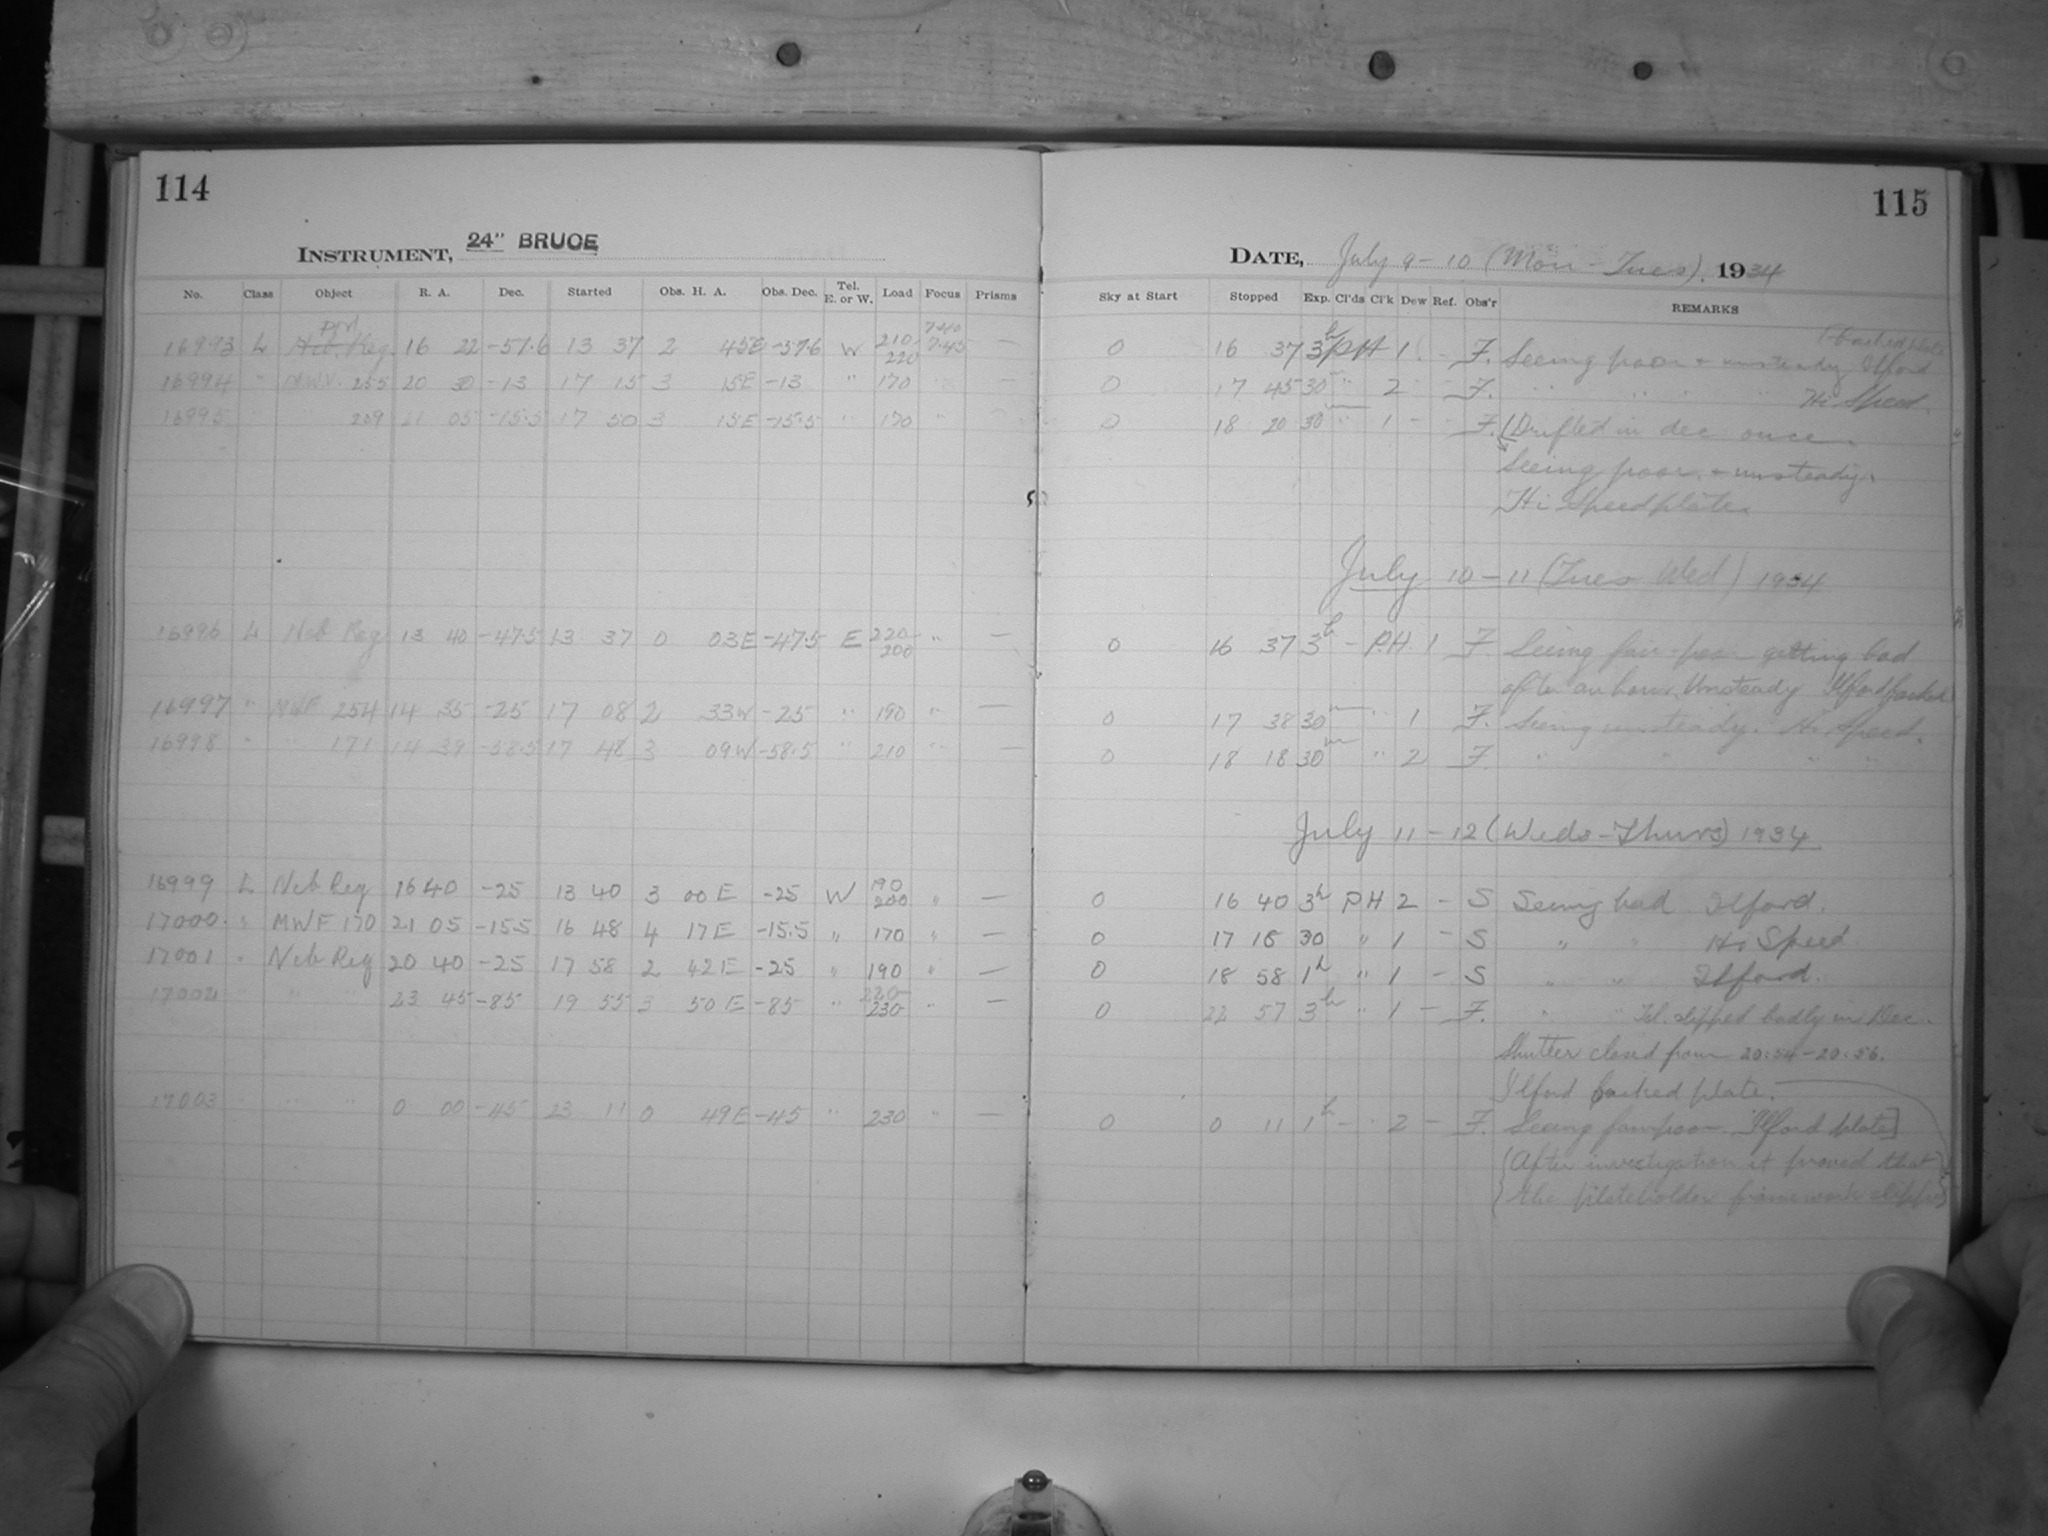 114
INSTRUMENT, 24" BRUCE
No. Class Object R. A. Dec. Started Obs. H. A. Obs. Dec. Tel. E. or W. Load Focus Prisms
16993 L Neb. Reg 16 22 -57.6 13 37 2 45E -57.6 W 210- 220 7.40 7.45 —
16994 " MWF. 255 20 30 -13 17 15 3 15E -13 " 170 " —
16995 " 259 21 05 -15.5 17 50 3 15E -15.5 " 170 " —
16996 L Neb Reg 13 40 -47.5 13 37 0 03E -47.5 E 220- 200 " —
16997 " MWF 254 14 35 -25 17 08 2 33W -25 " 190 " —
16998 " " 171 14 39 -58.5 17 48 3 09W -58.5 " 210 " —
16999 L Neb Reg 16 40 -25 13 40 3 00 E -25 W 190 200 " —
17000 " MWF 170 21 05 -15.5 16 48 4 17E -15.5 " 170 " —
17001 " Neb Reg 20 40 -25 17 58 2 42E -25 " 190 " —
17002 " " " 23 45 -85 19 55 3 50E -85 " 220- 230 " —
17003 " " 0 00 -45 23 11 0 49E -45 " 230 " —
115
DATE, July 9-10 (Mon-Tues). 1934
Sky at Start Stopped Exp. Cl'ds Cl'k Dew Ref. Obs'r REMARKS
0 16 37 3h PH 1 - F. Seeing poor + unsteady Ilford (backed plate
0 17 45 30m " 2 F. " " " "
Hi Speed.
0 18 20 30m " 1 - F. (Drifted in dec once
Seeing poor + unsteady.
Hi Speed plate.
July 10-11 (Tues Wed) 1934
0 16 37 3h - P.H. 1 F. Seeing fair-poor getting bad
after an hour. Unsteady Ilford backed
0 17 38 30m " 1 F. Seeing unsteady. Hi Speed.
0 18 18 30m " 2 F. " " " "
July 11-12 (Weds-Thurs) 1934
0 16 40 3h PH 2 - S Seeing bad Ilford.
0 17 18 30 " 1 - S " " Hi Speed
0 18 58 1h " 1 - S " " Ilford.
0 22 57 3h " 1 - F. " " Tel. slipped badly in Dec.
Shutter closed from 20:54-20:56.
Ilford backed plate.
0 0 11 1h - " 2 - F. Seeing fair poor. Ilford plate]
(After investigation it proved that
the plateholder framework slipped)